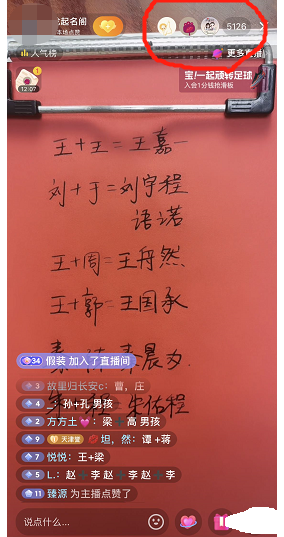 起名阁
本场点赞
5126
人气榜
更多直播
宝/一起顽转足球
入会1分钱抢滑板
12:07
王+王=王嘉一
刘+于=刘宇程
语诺
王+周=王舟然
王+郭=王国承
34 假装 加入了直播间
3 故里归长安c：曹，庄
4 ：孙+孔 男孩
朱佑程
2 方方土：梁+高 男孩
9 天津堂 坦，然：谭+蒋
7 悦悦：王+梁
5 L.：赵+李 赵+李 赵+李
11 臻源 为主播点赞了
说点什么...